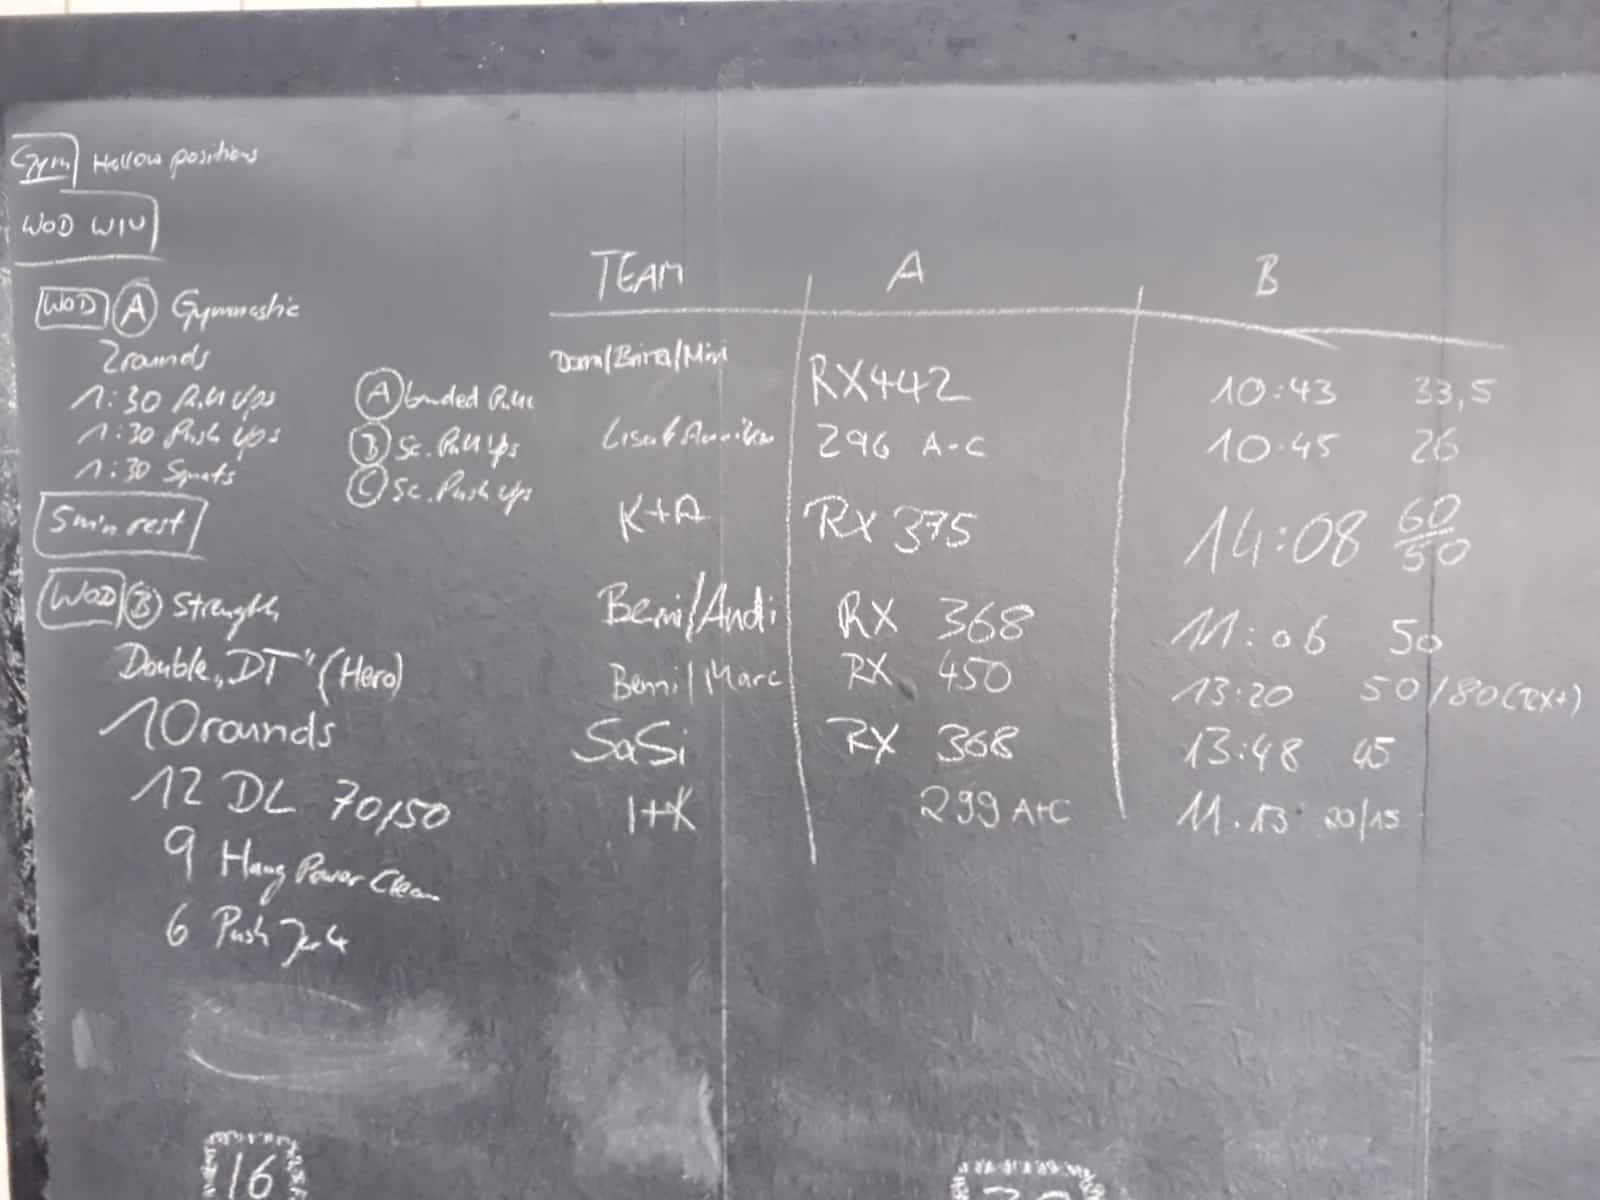 Gym Hollow positions
WOD WIU
WOD A Gymnastic
2rounds
1:30 Pull Ups
1:30 Push Ups
1:30 Squats
A banded Pull
B Sc. Pull Ups
C Sc. Push Ups
5min rest
WOD B Strength
Double "DT" (Hero)
10rounds
12 DL 70/50
9 Hang Power Clean
6 Push Jerk
TEAM A B
RX442 10:43 33,5
296 A-C 10:45 26
K+A RX 375 14:08 60/50
Beni/Andi RX 368 11:06 50
Benni/Marc RX 450 13:20 50/80(RX+)
SaSi RX 368 13:48 45
I+K 299 A+C 11.13 20/15
16